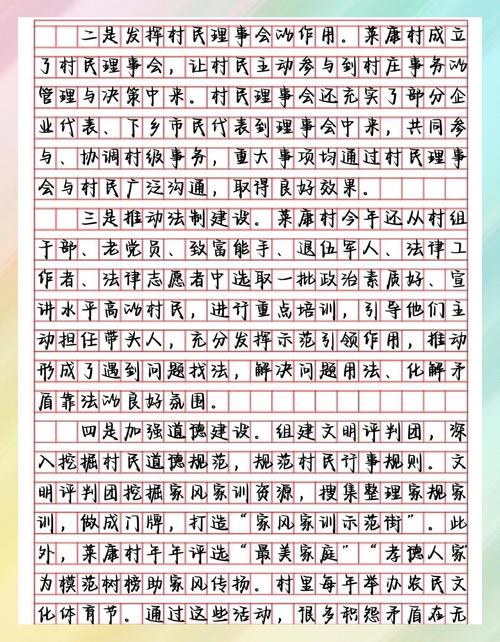 二是发挥村民理事会的作用。莱康村成立
了村民理事会，让村民主动参与到村庄事务的
管理与决策中来。村民理事会还充实了部分企
业代表、下乡市民代表到理事会中来，共同参
与、协调村级事务，重大事项均通过村民理事
会与村民广泛沟通，取得良好效果。
三是推动法制建设。莱康村今年还从村组
干部、老党员、致富能手、退伍军人、法律工
作者、法律志愿者中选取一批政治素质好、宣
讲水平高的村民，进行重点培训，引导他们主
动担任带头人，充分发挥示范引领作用，推动
形成了遇到问题找法，解决问题用法、化解矛
盾靠法的良好氛围。
四是加强道德建设。组建文明评判团，深
入挖掘村民道德规范，规范村民行事规则。文
明评判团挖掘家风家训资源，搜集整理家规家
训，做成门牌，打造“家风家训示范街”。此
外，莱康村年年评选“最美家庭”“孝德人家”
为模范树榜助家风传扬。村里每年举办农民文
化体育节。通过这些活动，很多积怨矛盾在无